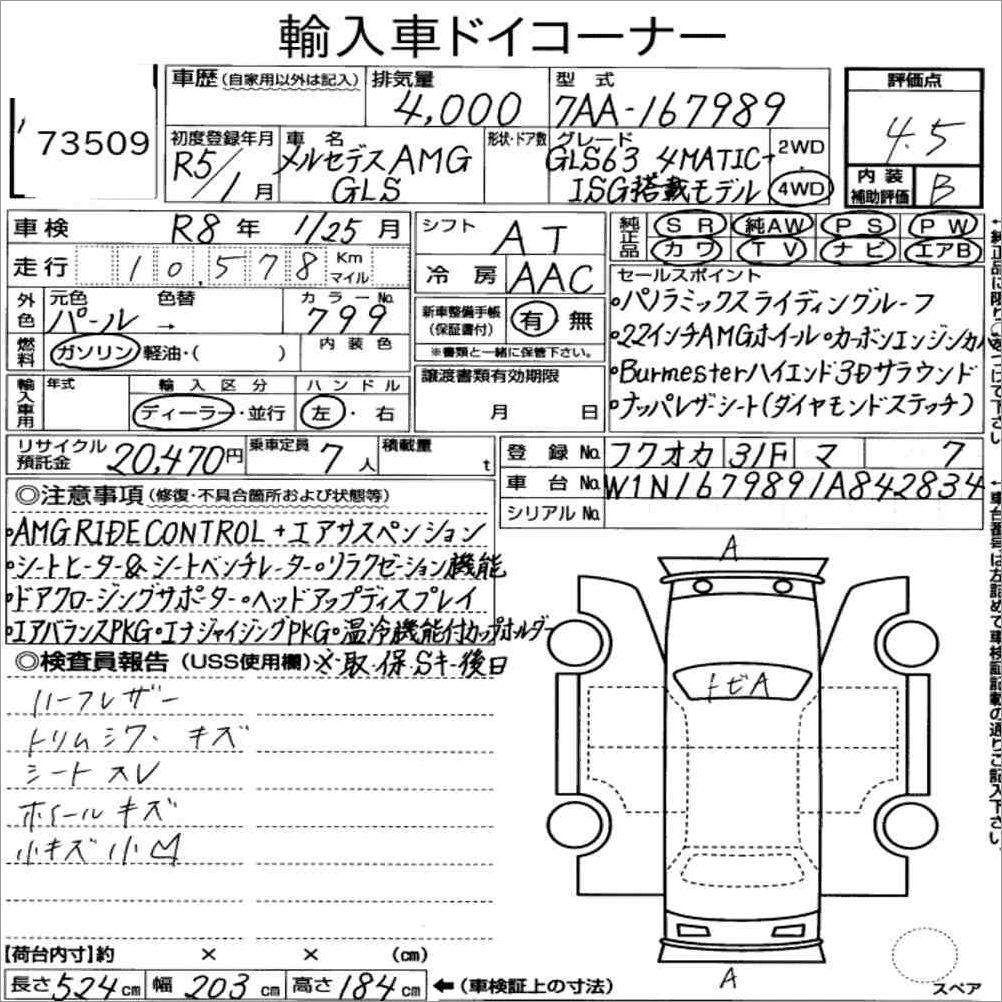 輸入車ドイコーナー
73509
車歴(自家用以外は記入) 排気量 4,000 型式 7AA-167989
評価点 4.5
初度登録年月 R5/1月 車名 メルセデスAMG GLS 形状・ドア数 グレード GLS63 4MATIC+ ISG搭載モデル 2WD・4WD
内装補助評価 B
車検 R8年 1/25月 シフト AT 純正品 SR 純AW PS PW
カワ TV ナビ エアB
走行 10,578 Km マイル 冷房 AAC
セールスポイント
外色 元色 パール → 色替 カラーNo. 799 新車整備手帳(保証書付) 有 無
・パノラミックスライディングルーフ
燃料 ガソリン・軽油・( ) 内装色 ※書類と一緒に保管下さい。
・22インチAMGホイール・カーボンエンジンカバ
輸入車用 年式 輸入区分 ディーラー・並行 ハンドル 左・右 譲渡書類有効期限 月 日
・Burmesterハイエンド3Dサラウンド
・ナッパレザーシート(ダイヤモンドステッチ)
リサイクル預託金 20,470円 乗車定員 7人 積載量 t 登録No. フクオカ 31F マ 7
車台No. W1N1679891A842834
シリアルNo.
◎注意事項(修復・不具合箇所および状態等)
・AMG RIDE CONTROL+エアサスペンション
・シートヒーター&シートベンチレーター・リラクゼーション機能
・ドアクロージングサポーター・ヘッドアップディスプレイ
・エアバランスPKG・エナジャイジングPKG・温冷機能付カップホルダー
◎検査員報告(USS使用欄)※・取・保・Sキー後日
ハーフレザー
トリムシワ・キズ
シートスレ
ホイールキズ
小キズ小凹
A
トビA
A
【荷台内寸】約 × × (cm)
長さ524cm 幅203cm 高さ184cm ←(車検証上の寸法)
スペア